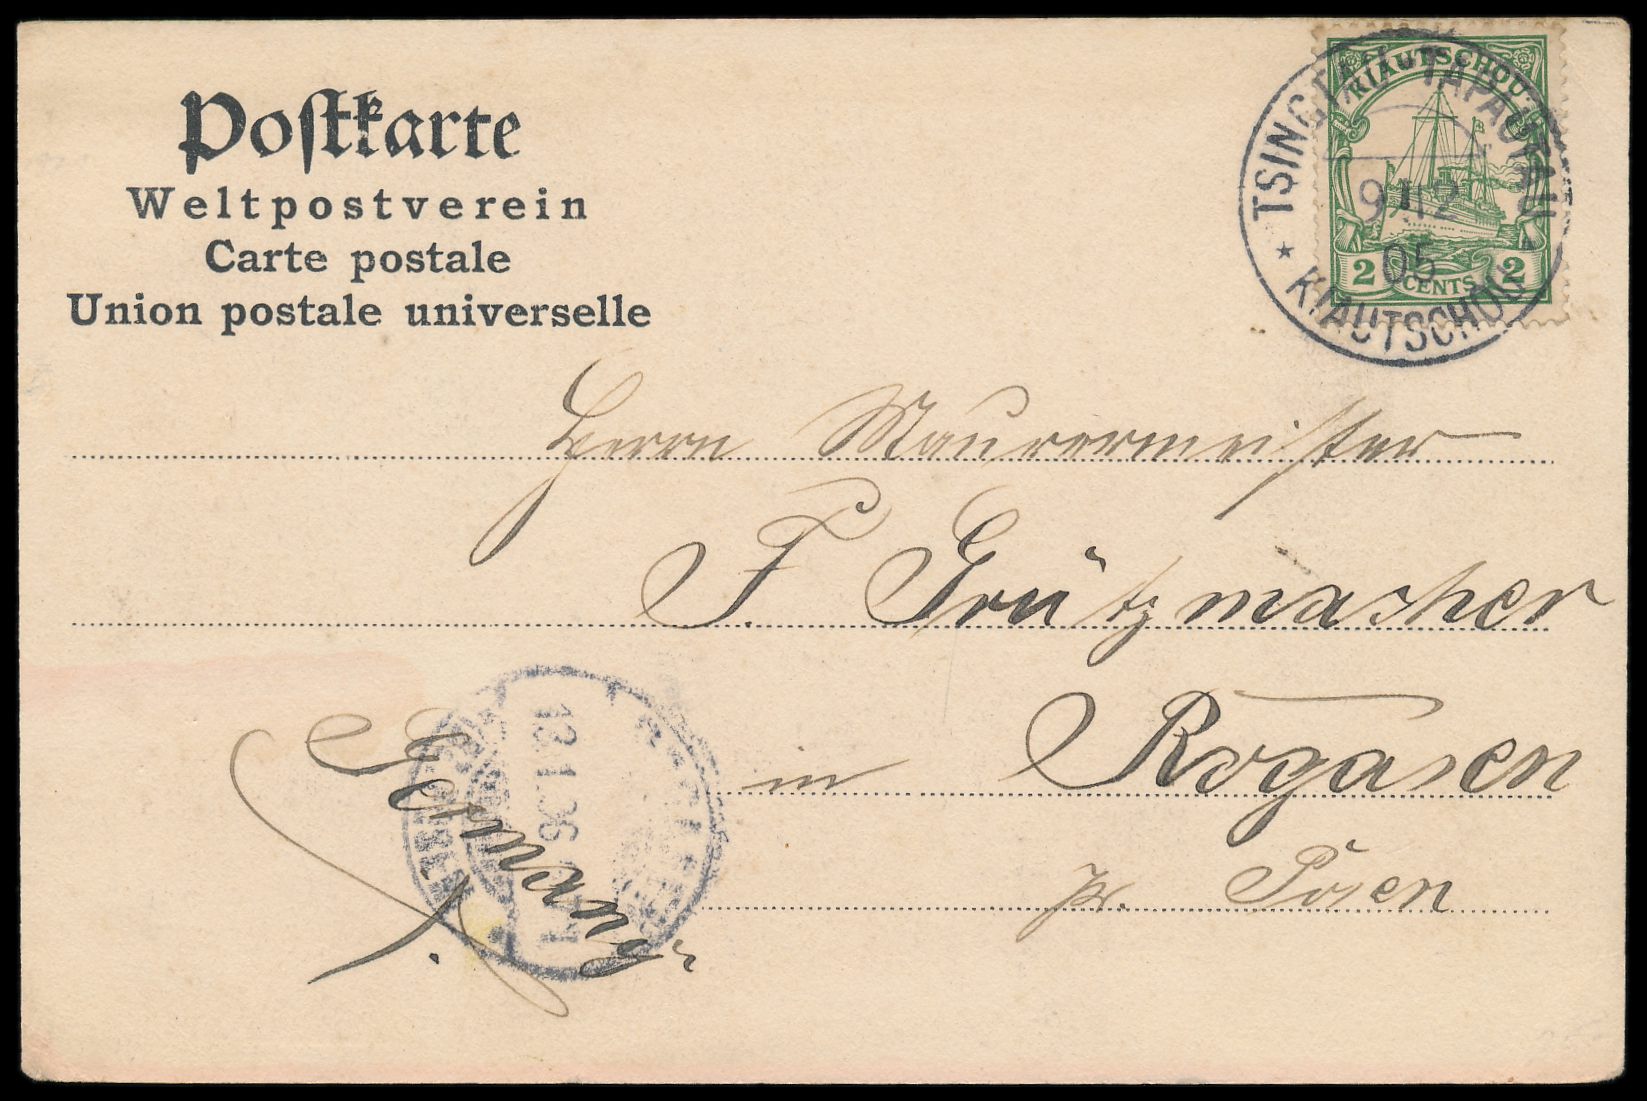 Postkarte
Weltpostverein
Carte postale
Union postale universelle
KIAUTSCHOU
2 CENTS 2
TSINGTAU-TAPAUTAU
9 12
05
* KIAUTSCHOU *
Herrn Maurermeister
F. Grützmacher
in Rogasen
pr. Posen
Germany
13.1.06